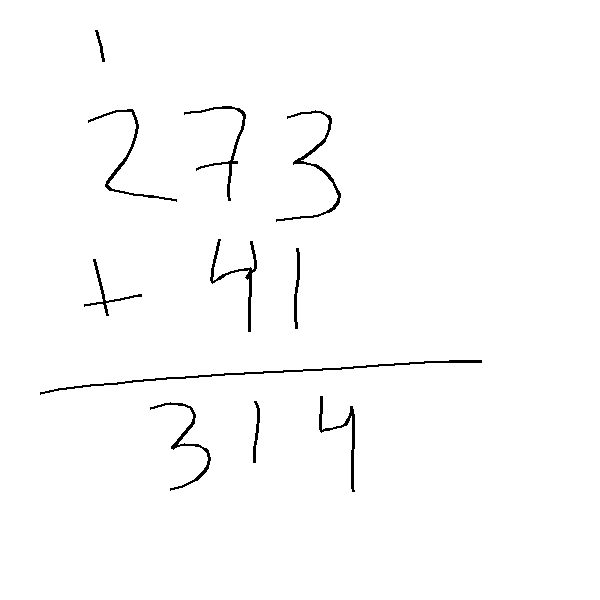 1
273
+ 41
314